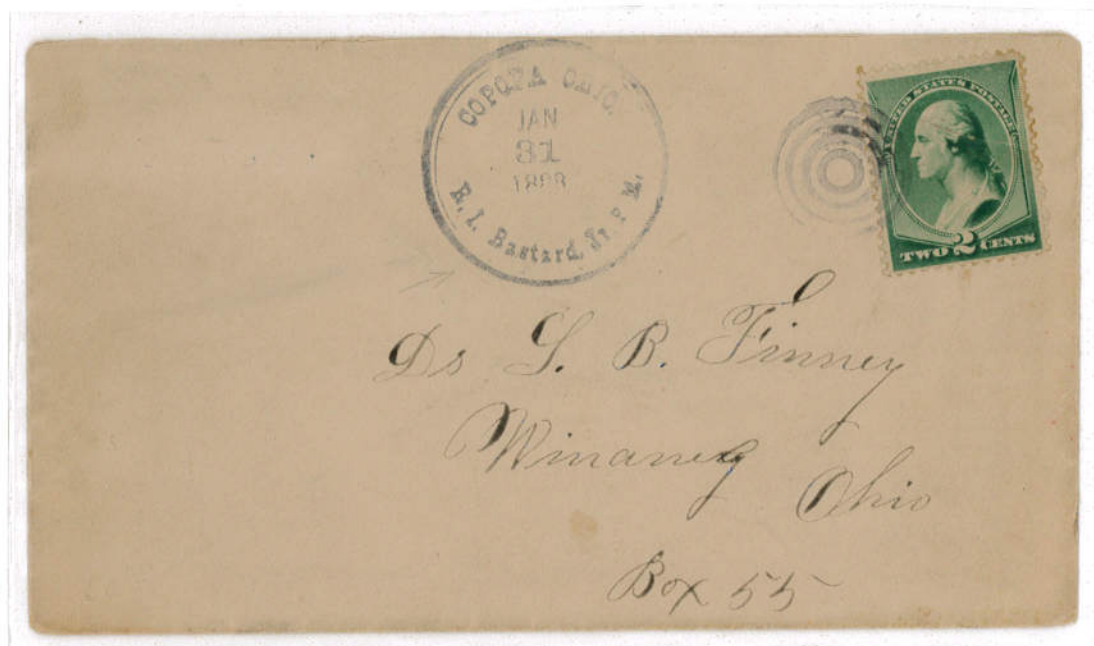 COPOPA OHIO.
JAN
31
1888
R. I. Bastard, Jr P M.
UNITED STATES POSTAGE
TWO 2 CENTS
Ds S. B. Finney
Winameg
Ohio
Box 55